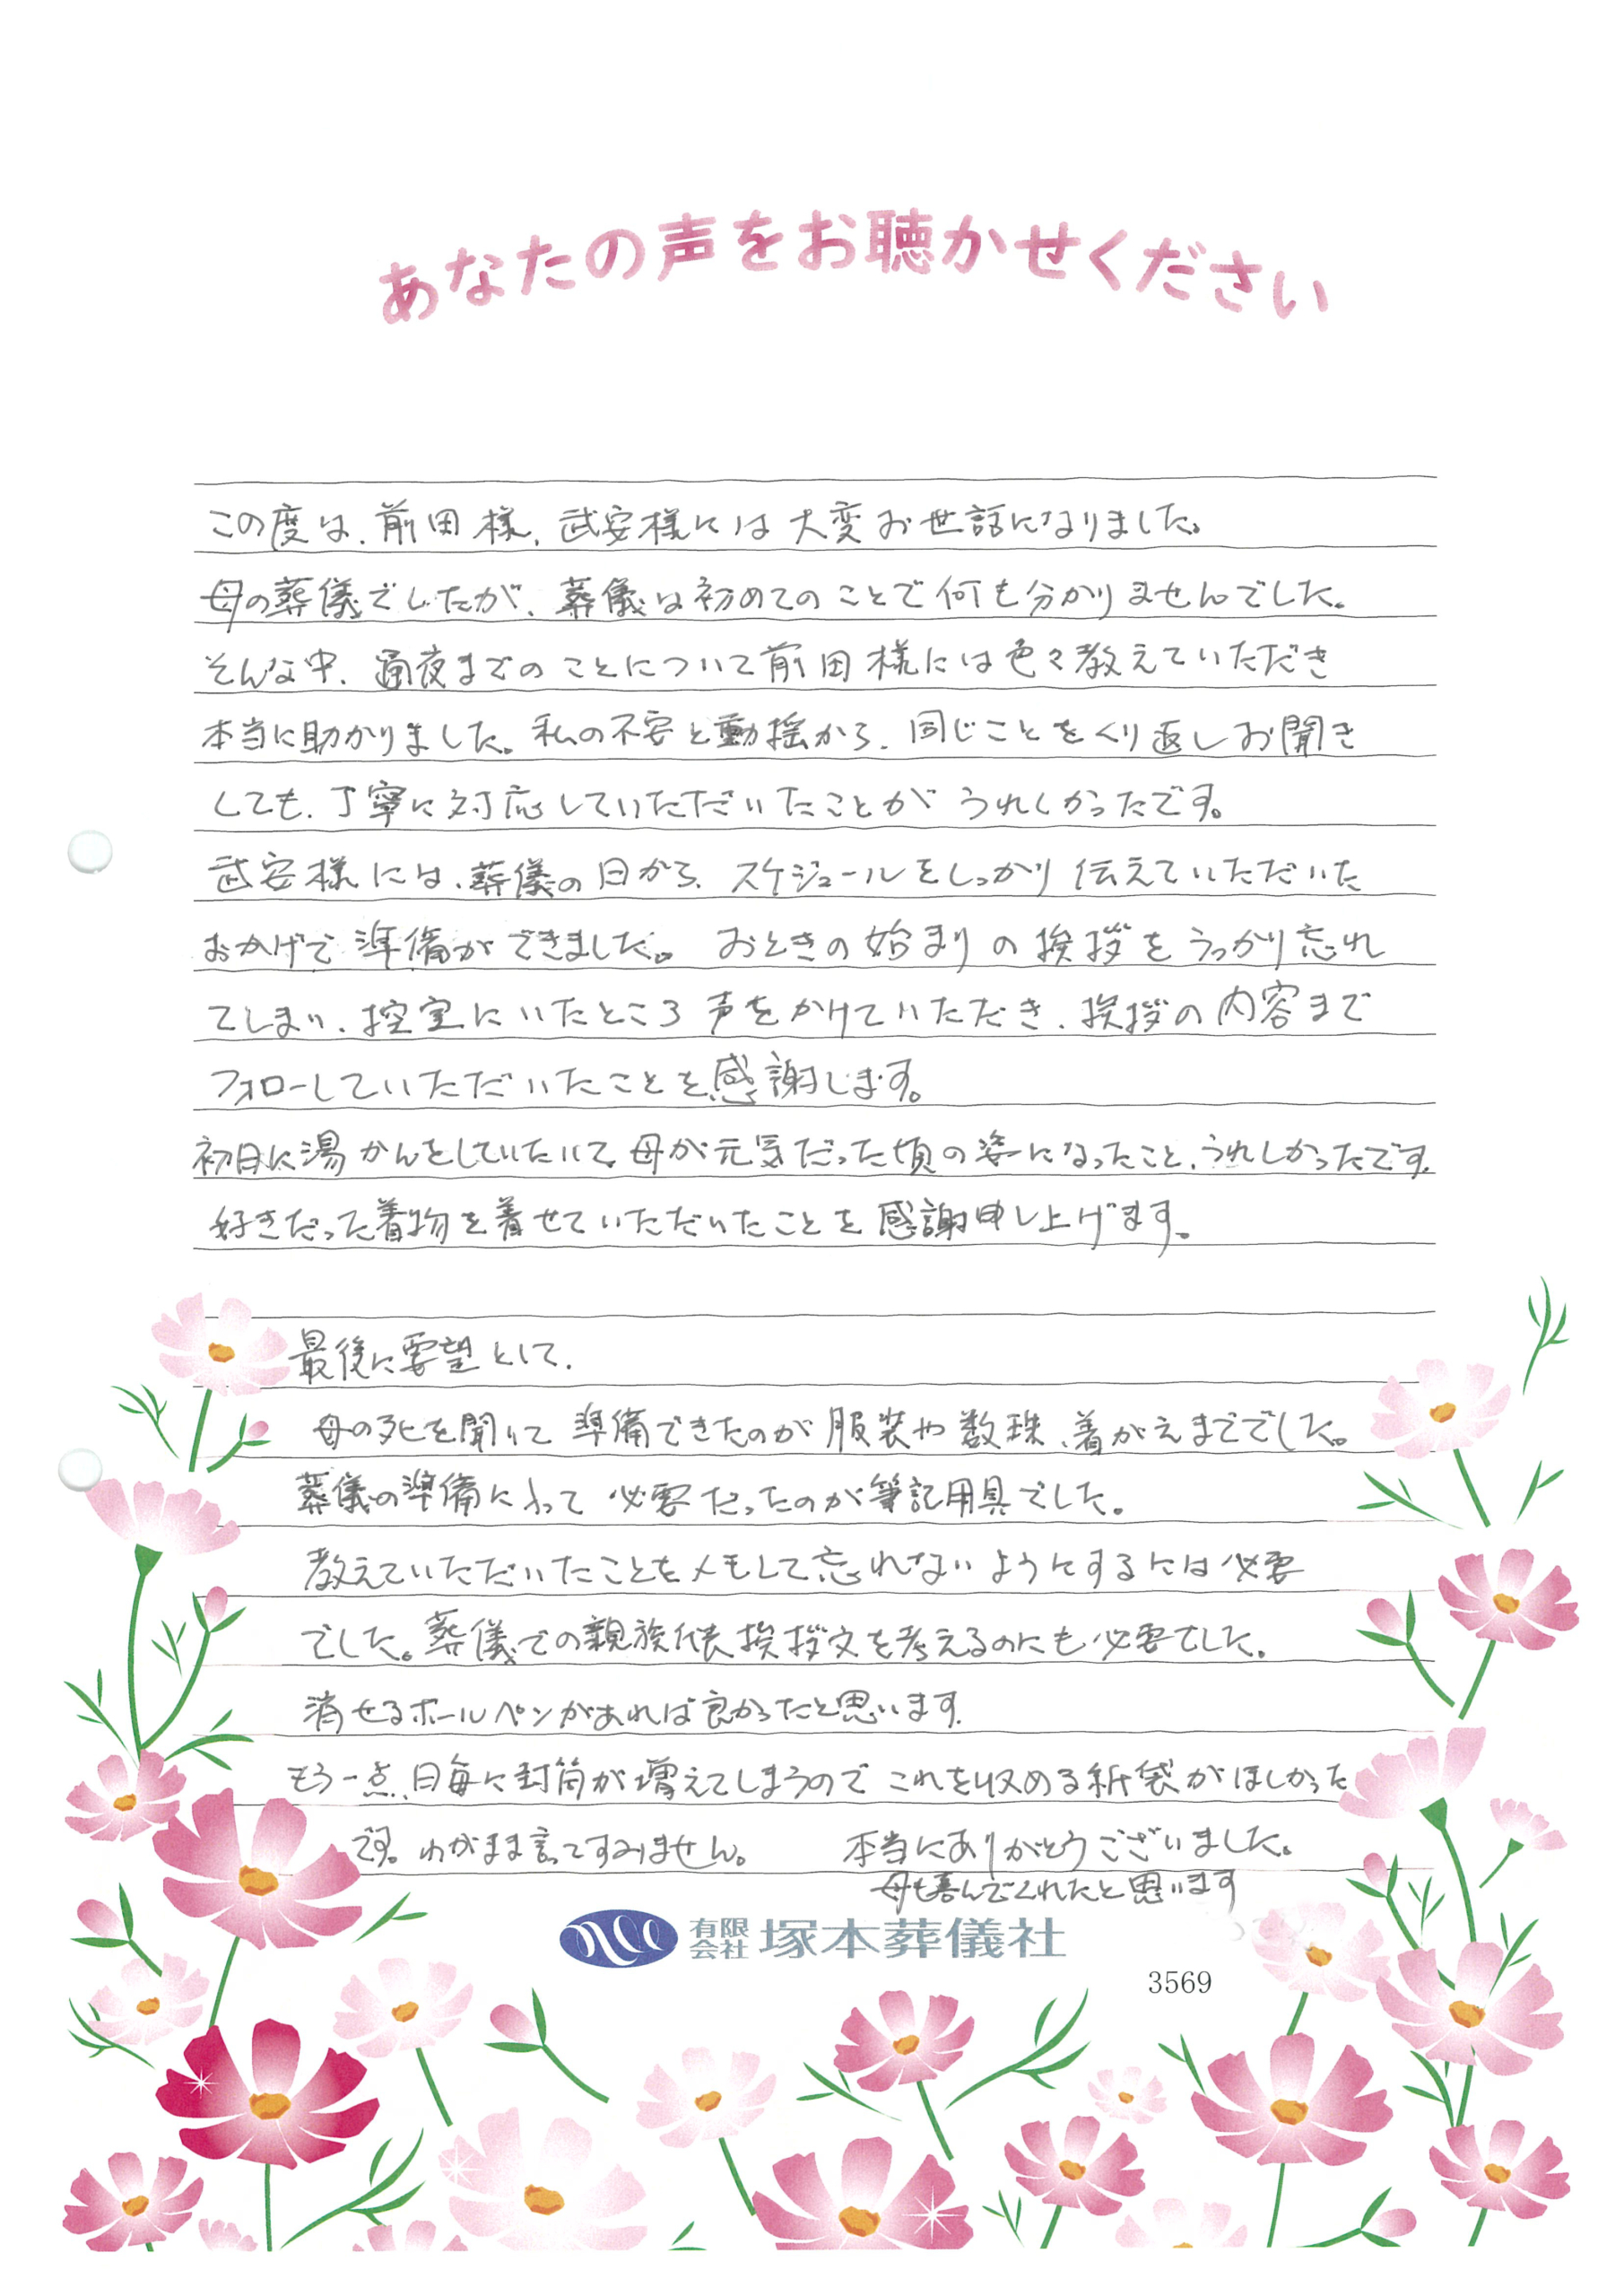 あなたの声をお聴かせください
この度は、前田様、武安様には大変お世話になりました。
母の葬儀でしたが、葬儀は初めてのことで何も分かりませんでした。
そんな中、通夜までのことについて前田様には色々教えていただき
本当に助かりました。私の不安と動揺から、同じことをくり返しお聞き
しても、丁寧に対応していただいたことがうれしかったです。
武安様には、葬儀の日から、スケジュールをしっかり伝えていただいた
おかげで準備ができました。 おときの始まりの挨拶をうっかり忘れ
てしまい、控室にいたところ声をかけていただき、挨拶の内容まで
フォローしていただいたことを感謝します。
初日に湯かんをしていたいて、母が元気だった頃の姿になったこと、うれしかったです。
好きだった着物を着せていただいたことを感謝申し上げます。
最後に要望として、
母の死を聞いて準備できたのが服装や数珠、着がえまででした。
葬儀の準備によって必要だったのが筆記用具でした。
教えていただいたことをメモして忘れないようにするには必要
でした。葬儀での親族代表挨拶文を考えるのにも必要でした。
消せるボールペンがあれば良かったと思います。
もう一点、日毎に封筒が増えてしまうのでこれを収める紙袋がほしかった
です。わがまま言ってすみません。 本当にありがとうございました。
母も喜んでくれたと思います
有限会社 塚本葬儀社
3569